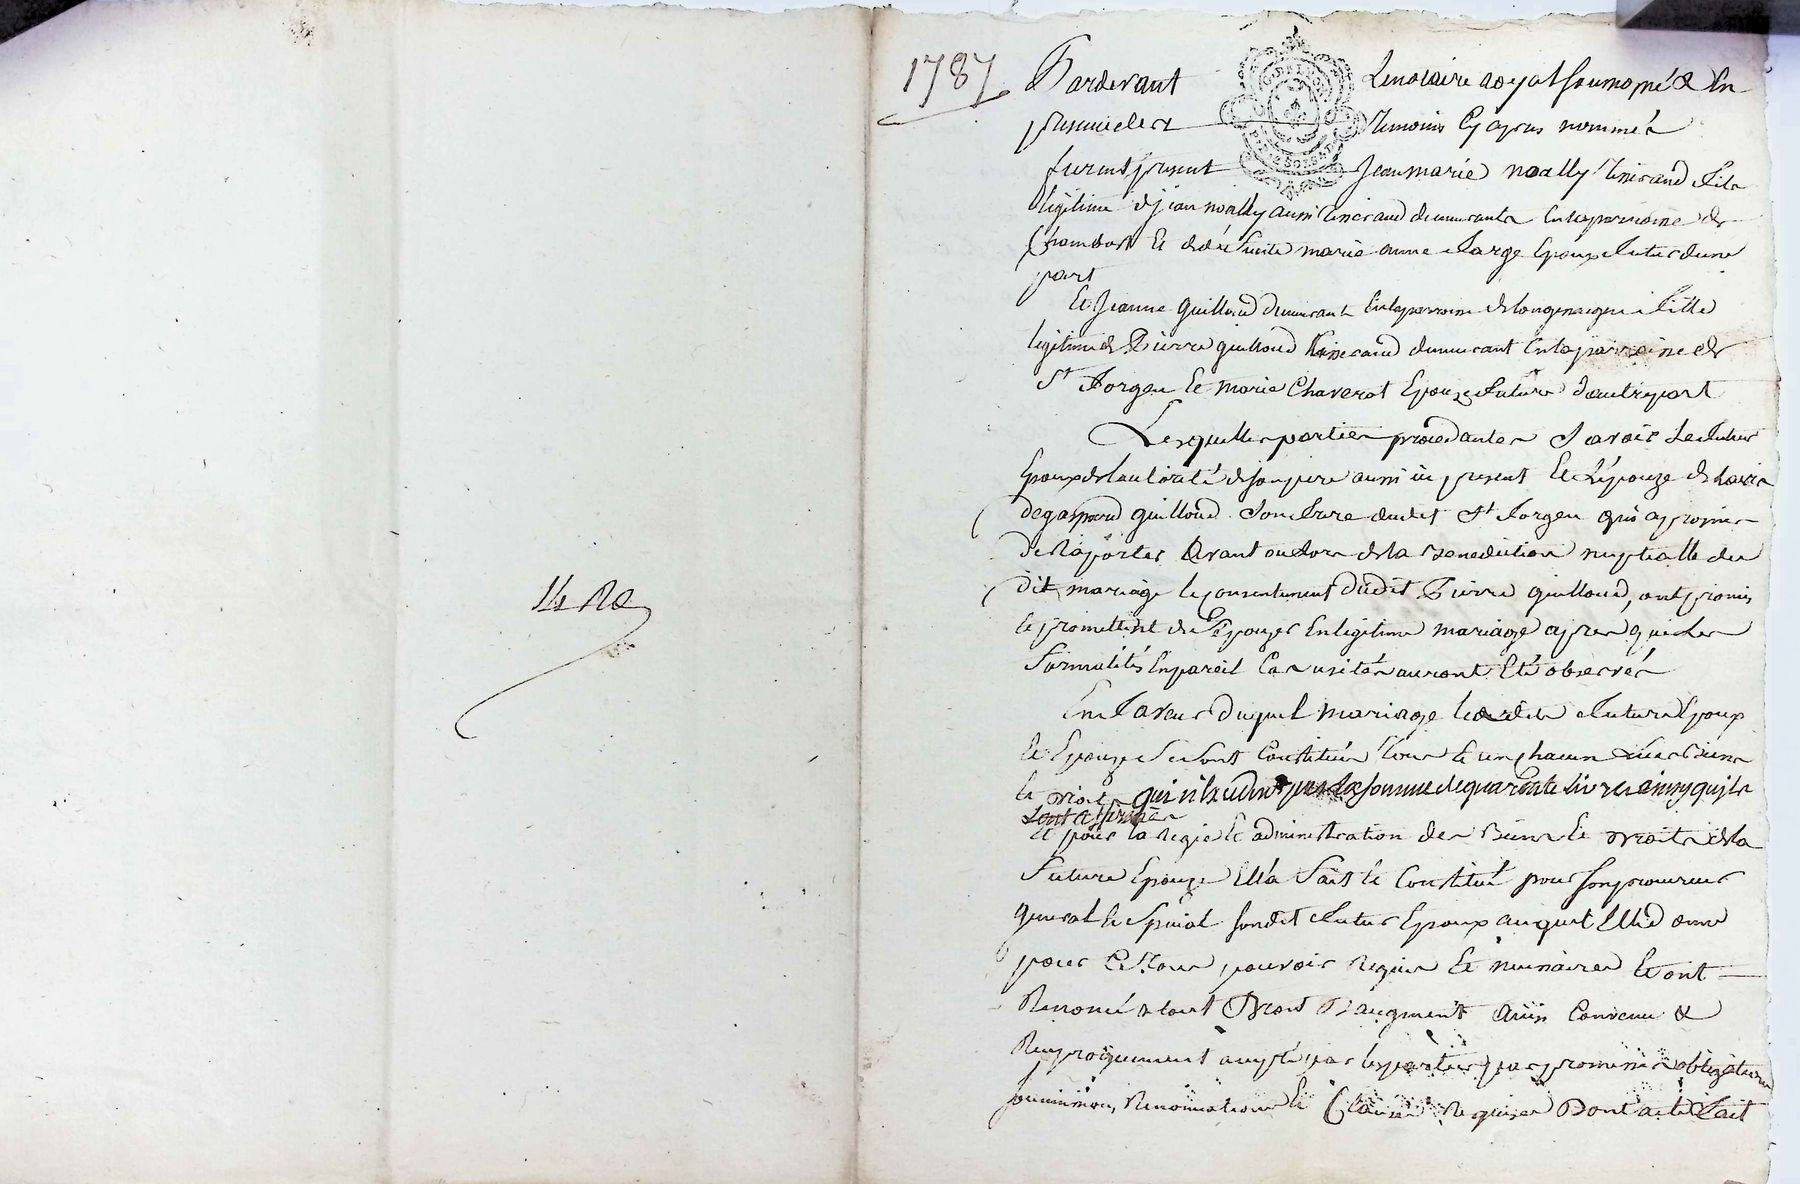 14 Re
1787
Pardevant Le notaire royal soussigné & En
presence des temoins Cy apres nommés
furent present Jean marie noally tisserand fils
legitime de jean noally aussi tisserand demeurants En la parroisse de
Chambost Et de deffunte marie anne farge Epoux futur d'une
part
Et Jeanne guilloud demeurante En la parroisse de longessaigne fille
legitime de Pierre guilloud tisserand demeurant En la parroisse de
St forgeu Et marie Chaverot Epouze future d'autre part
Lesquelles parties procedantes Savoir Le futur
Epoux de l'autorité de son pere aussi ici present Et L'épouze de L'avis
de gaspard guilloud Son frere dudit St forgeu qui a promis
de Raporter avant ou lors de la Benediction nuptialle du
dit mariage le consentement dudit Pierre guilloud, ont promis
Et promettent de S'Epouzer En legitime mariage apres que Les
formalités En pareil Cas usitées auront Eté observés
En faveur duquel mariage lesdits futurs Epoux
Et Epouze Se Sont Constitués tous Et un chacun Leurs Biens
Et Droits qui n'excedent pas la somme de quarente livres ainsy qu'ils
L'ont affirmés
Et pour la regie Et administration des Biens Et Droits de la
future Epouze Ell'a fait Et Constitué pour son procureur
general Et Special Sondit futur Epoux auquel Elle donne
pour Ce tous pouvoirs Requis Et necessaires Et ont
Renoncé a tout Droit D'augment Ainsi Convenu &
Reciproquement accepté par les parties par promesses obligations
soumissions, Renonciations Et Clauses Requises Dont acte fait